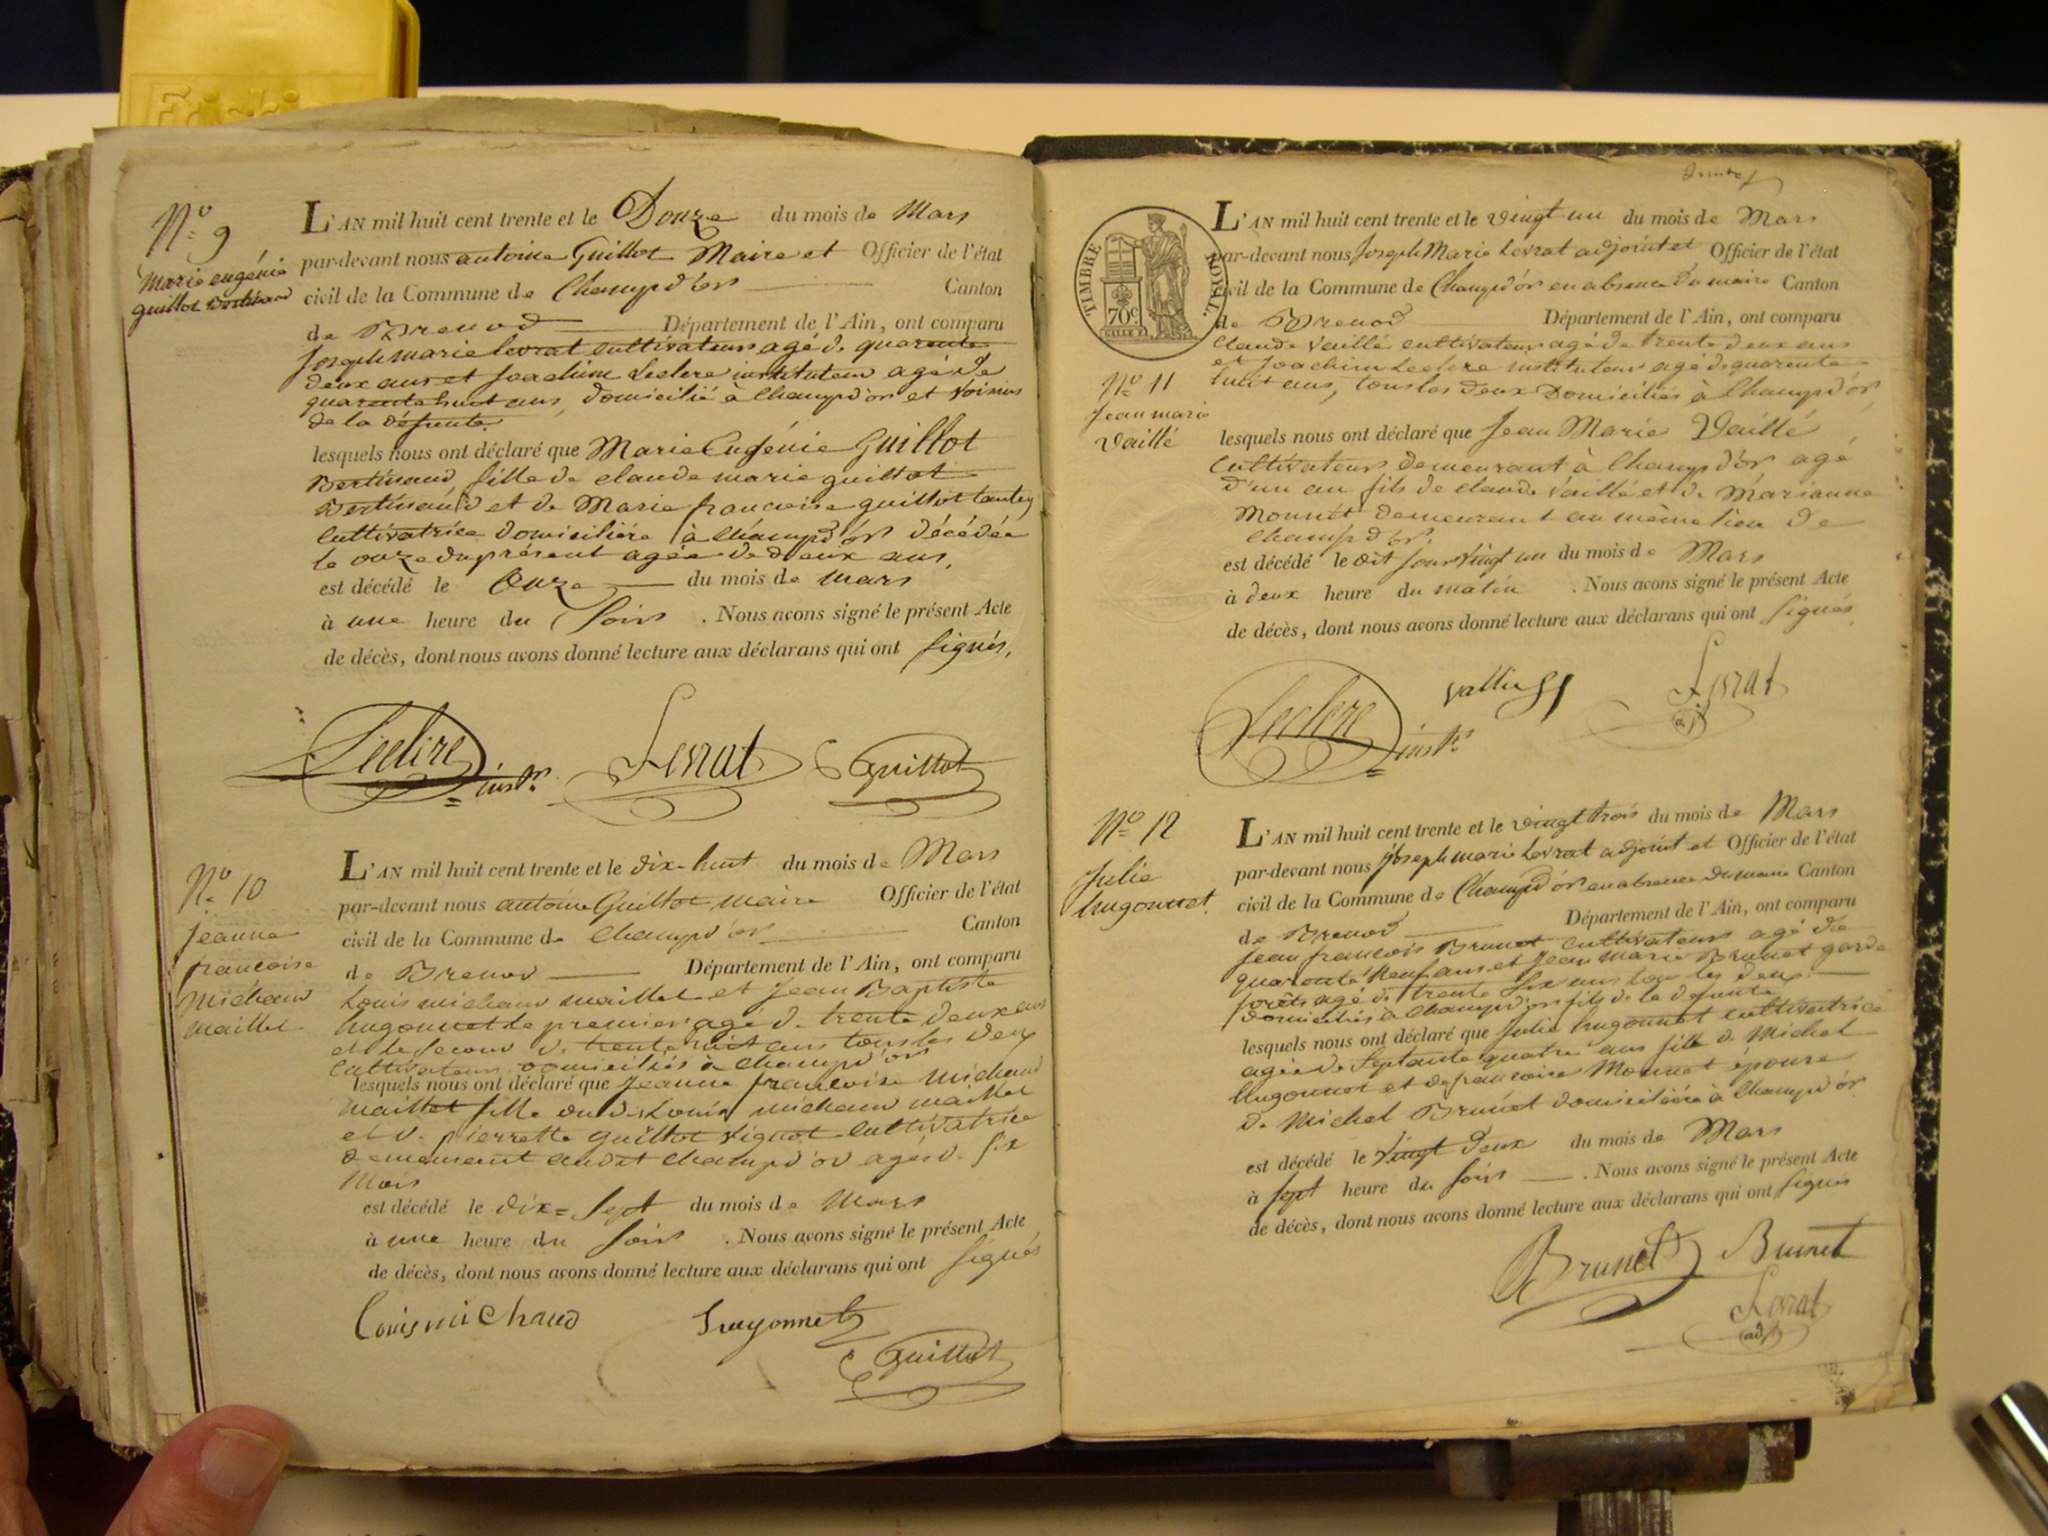 Friskies
N.o 9
Marie eugénie
guillot Bertinand
L'AN mil huit cent trente et le Douze du mois de Mars
par-devant nous antoine Guillot Maire et Officier de l'état
civil de la Commune de Champd'or Canton
de Brenod Département de l'Ain, ont comparu
Joseph marie levrat cultivateur agé de quarente
deux ans et Joachim Leclere instituteur agé de
quarente huit ans, domicilié à Champd'or et voisins
de la défunte.
lesquels nous ont déclaré que Marie Eugénie Guillot
Bertinand, fille de claude marie guillot
Bertinand et de Marie françoise guillot tantey
Cultivatrice domiciliére à Champd'or décédée
le onze du présent agée de deux ans,
est décédé le Onze du mois de mars
à une heure du Soir . Nous avons signé le présent Acte
de décès, dont nous avons donné lecture aux déclarans qui ont signés,
Leclere instr Levrat Guillot
N.o 10
jeanne
françoise
Michaud
maillet
L'AN mil huit cent trente et le dix-huit du mois de Mars
par-devant nous antoine Guillot maire Officier de l'état
civil de la Commune de Champd'or Canton
de Brenod Département de l'Ain, ont comparu
Louis michaud maillet et Jean Baptiste
hugonnet le premier agé de trente deux ans
et le second de trente huit ans tous les deux
cultivateurs domiciliés à Champd'or
lesquels nous ont déclaré que Jeanne françoise Michaud
Maillet fille du dit Louis michaud maillet
et de pierrette guillot vignot cultivatrice
demeurant au dit Champd'or agés de six
Mois
est décédé le dix=sept du mois de Mars
à une heure du soir . Nous avons signé le présent Acte
de décès, dont nous avons donné lecture aux déclarans qui ont signés
Louis michaud hugonnet
Guillot
TIMBRE ROYAL.
70c
L'AN mil huit cent trente et le vingt un du mois de Mars
par-devant nous Joseph Marie Levrat adjoint et Officier de l'état
civil de la Commune de Champd'or en absence du maire Canton
de Brenod Département de l'Ain, ont comparu
Claude Vaillé cultivateur agé de trente deux ans
et Joachim Leclere instituteur agé de quarente
huit ans, tous les deux Domiciliés à Champd'or,
N.o 11
Jean marie
Vaillé
lesquels nous ont déclaré que Jean Marie Vaillé
Cultivateur demeurant à Champd'or agé
d'un an fils de claude Vaillé et de Marianne
Monnet demeurant au même lieu de
Champd'or.
est décédé le dit jour vingt un du mois de Mars
à deux heure du matin . Nous avons signé le présent Acte
de décès, dont nous avons donné lecture aux déclarans qui ont signés,
Leclere instr Levrat
adj
N.o 12
Julie
hugonnet.
L'AN mil huit cent trente et le vingt trois du mois de Mars
par-devant nous joseph marie Levrat adjoint et Officier de l'état
civil de la Commune de Champd'or en absence du maire Canton
de Brenod Département de l'Ain, ont comparu
Jean françois Brunet cultivateur agé de
quarente neuf ans et Jean Marie Brunet garde
forêts agé de trente six ans tous les deux
domiciliés à Champd'or fils de la defunte
lesquels nous ont déclaré que Julie hugonnet cultivatrice
agée de Septante quatre ans fille de Michel
hugonnet et de françoise Monnet épouse
de Michel Brunet domiciliére à Champd'or
est décédé le vingt deux du mois de Mars
à sept heure du soir . Nous avons signé le présent Acte
de décès, dont nous avons donné lecture aux déclarans qui ont signés
Brunet Brunet
Levrat
adj